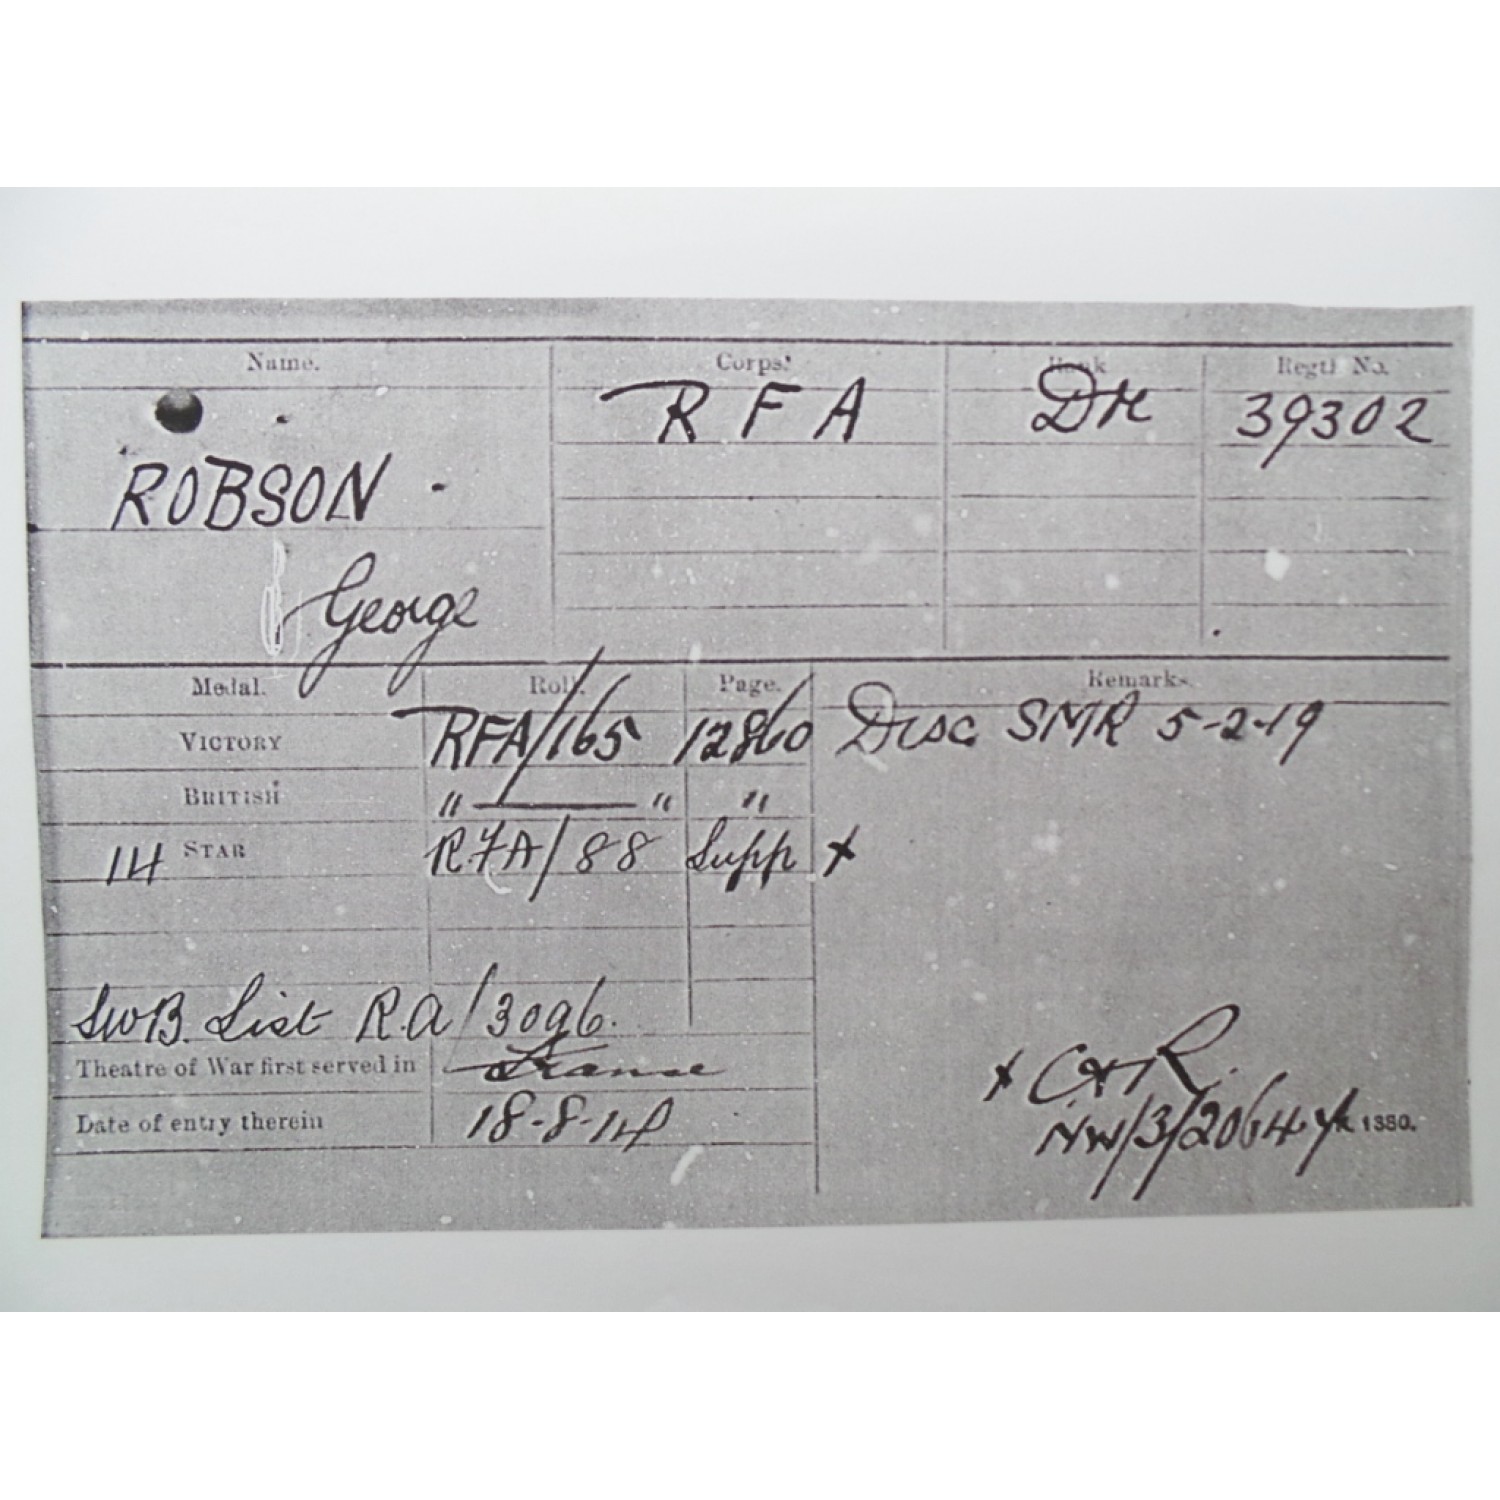 Name. Corps. Rank Regtl No.
RFA DR 39302
ROBSON
George
Medal. Roll. Page. Remarks.
VICTORY RFA/165 12860 Disc SMR 5-2-19
BRITISH " —— " "
14 STAR R.F.A/88 Supp x
SWB. List R.A/3096.
Theatre of War first served in France
Date of entry therein 18-8-14
x C & R.
NW/3/20644 1380.